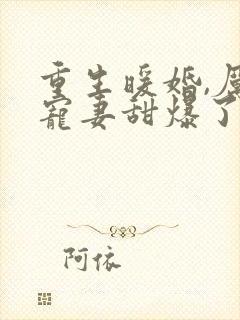 重生暖婚,厉
宠妻甜爆了
阿依